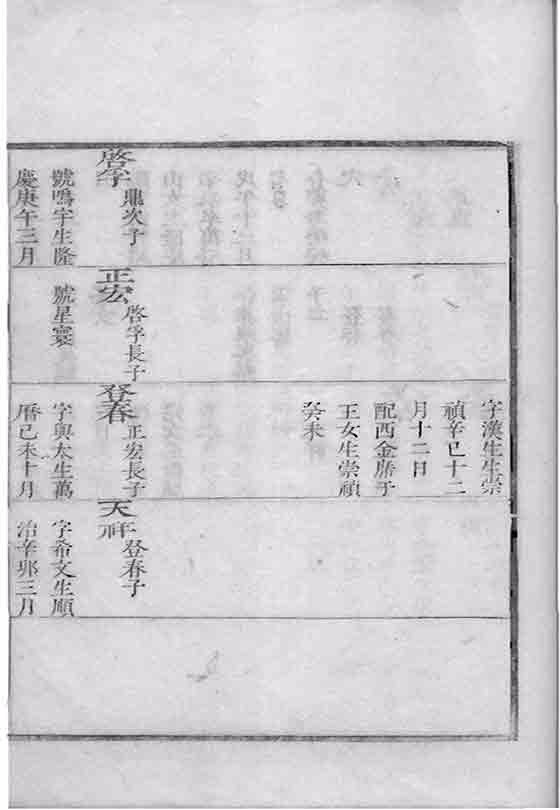 啓孚 鼎次子
號鳴宇生隆
慶庚午三月
正宏 啓孚長子
號星寰
字漢生生崇
禎辛巳十二
月十二日
配西金唐子
王女生崇禎
癸未
登春 正宏長子
字與太生萬
曆己未十月
天祥 登春子
字希文生順
治辛卯三月